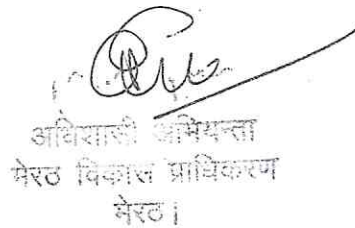 अधिशासी अभियन्ता
मेरठ विकास प्राधिकरण
मेरठ।